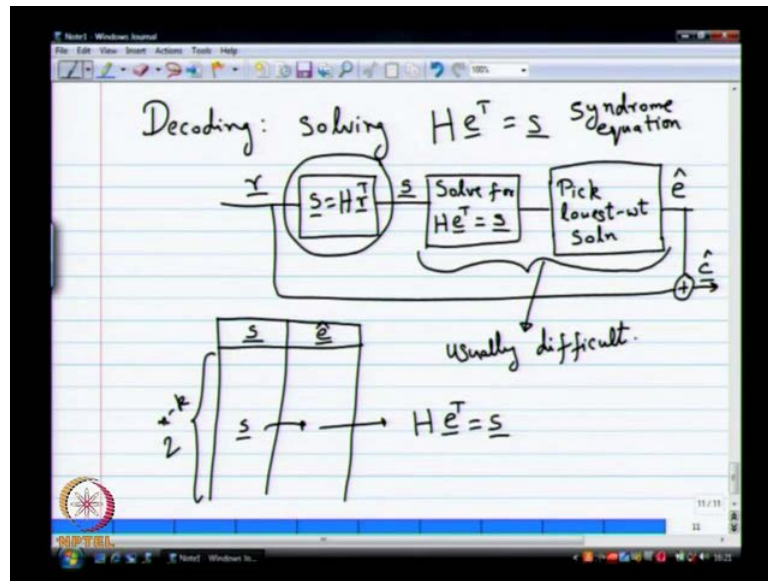 Note1 - Windows Journal
File Edit View Insert Actions Tools Help
100%
Decoding: solving H e^T = s syndrome equation
r
s = H r^T
s
Solve for H e^T = s
Pick lowest-wt soln
ê
ĉ
usually difficult.
s ê
2^n-k
s → → H e^T = s
11/11
11
NPTEL
Note1 - Windows Jo...
16:21